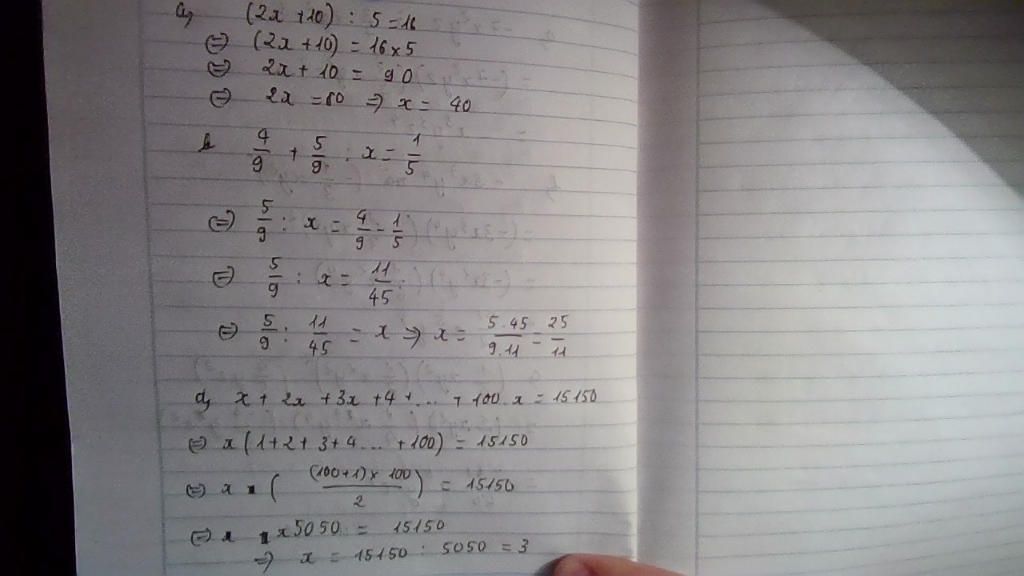 a, (2x +10) : 5 = 16
⇔ (2x +10) = 16×5
⇔ 2x + 10 = 90
⇔ 2x = 80 ⇒ x = 40
b 4/9 + 5/9 : x = 1/5
⇔ 5/9 : x = 4/9 - 1/5
⇔ 5/9 : x = 11/45
⇔ 5/9 : 11/45 = x ⇒ x = 5.45/9.11 = 25/11
d, x + 2x + 3x + 4 + .... + 100.x = 15150
⇔ x (1+2+3+4 ... +100) = 15150
⇔ x × ( (100+1)×100/2 ) = 15150
⇔ x ×5050 = 15150
⇒ x = 15150 : 5050 = 3